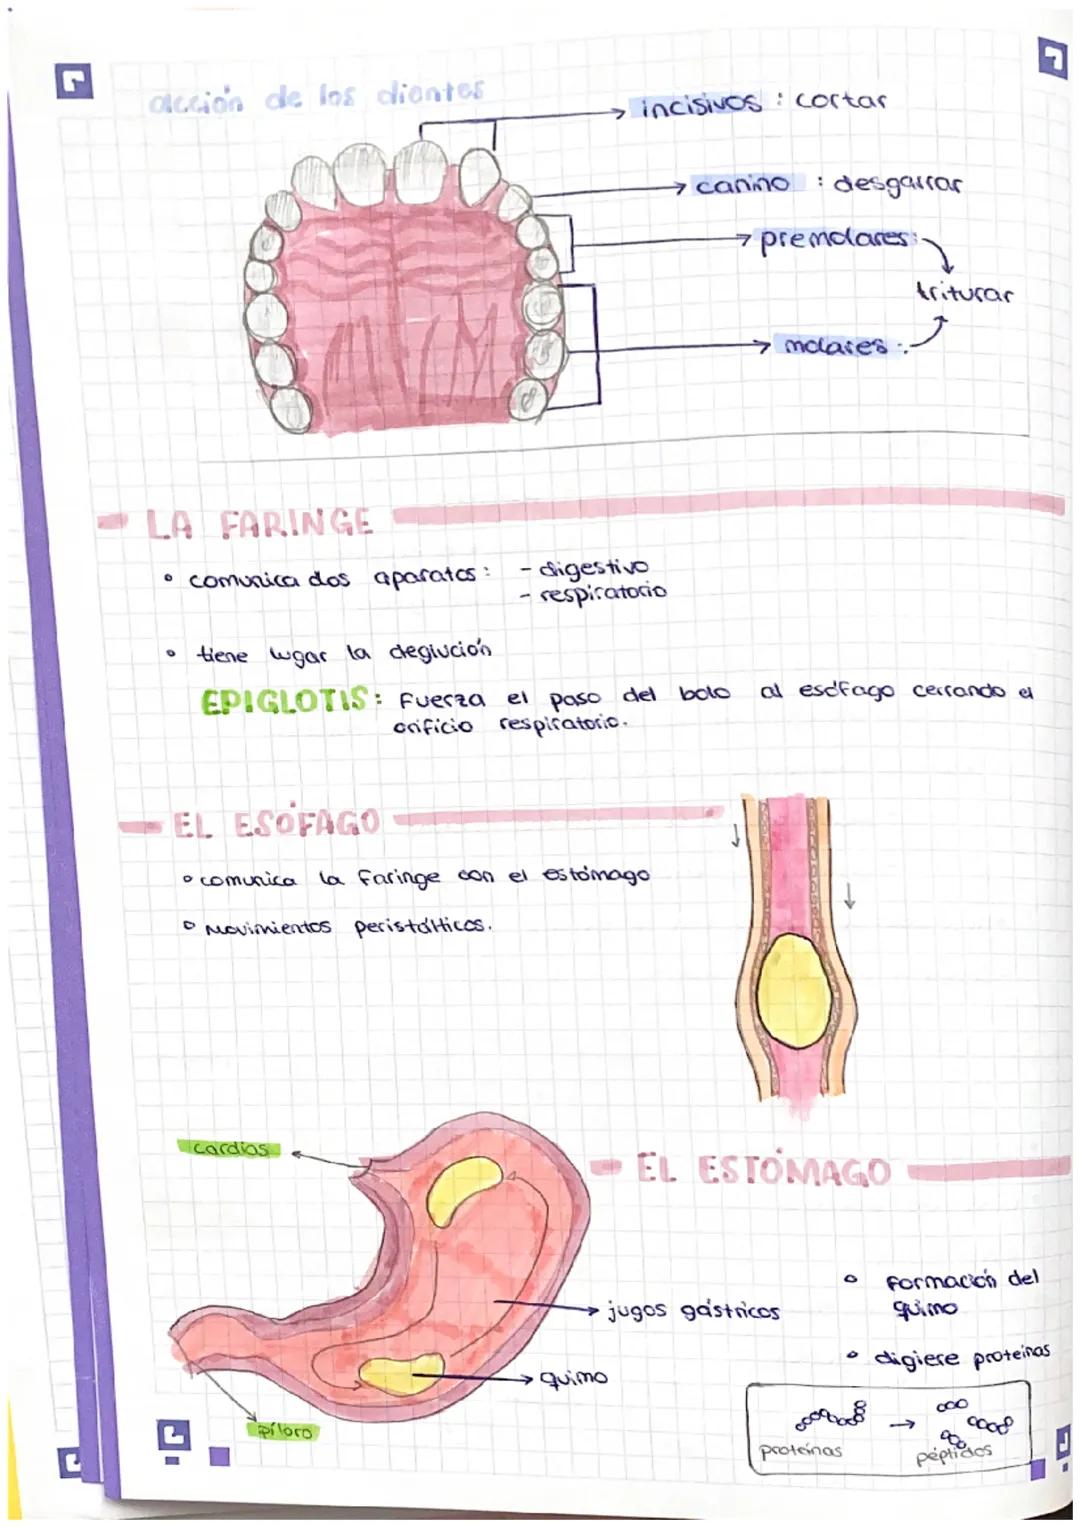 acción de los dientes
incisivos : cortar
canino : desgarrar
premolares:
triturar
molares :
LA FARINGE
• comunica dos aparatos: - digestivo
- respiratorio
• tiene lugar la deglución
EPIGLOTIS: Fuerza el paso del bolo al esófago cerrando el
orificio respiratorio.
EL ESÓFAGO
• comunica la faringe con el estómago
• Movimientos peristálticos.
cardias
EL ESTÓMAGO
• Formación del
quimo
jugos gástricos
• digiere proteinas
quimo
píloro
proteínas
péptidos